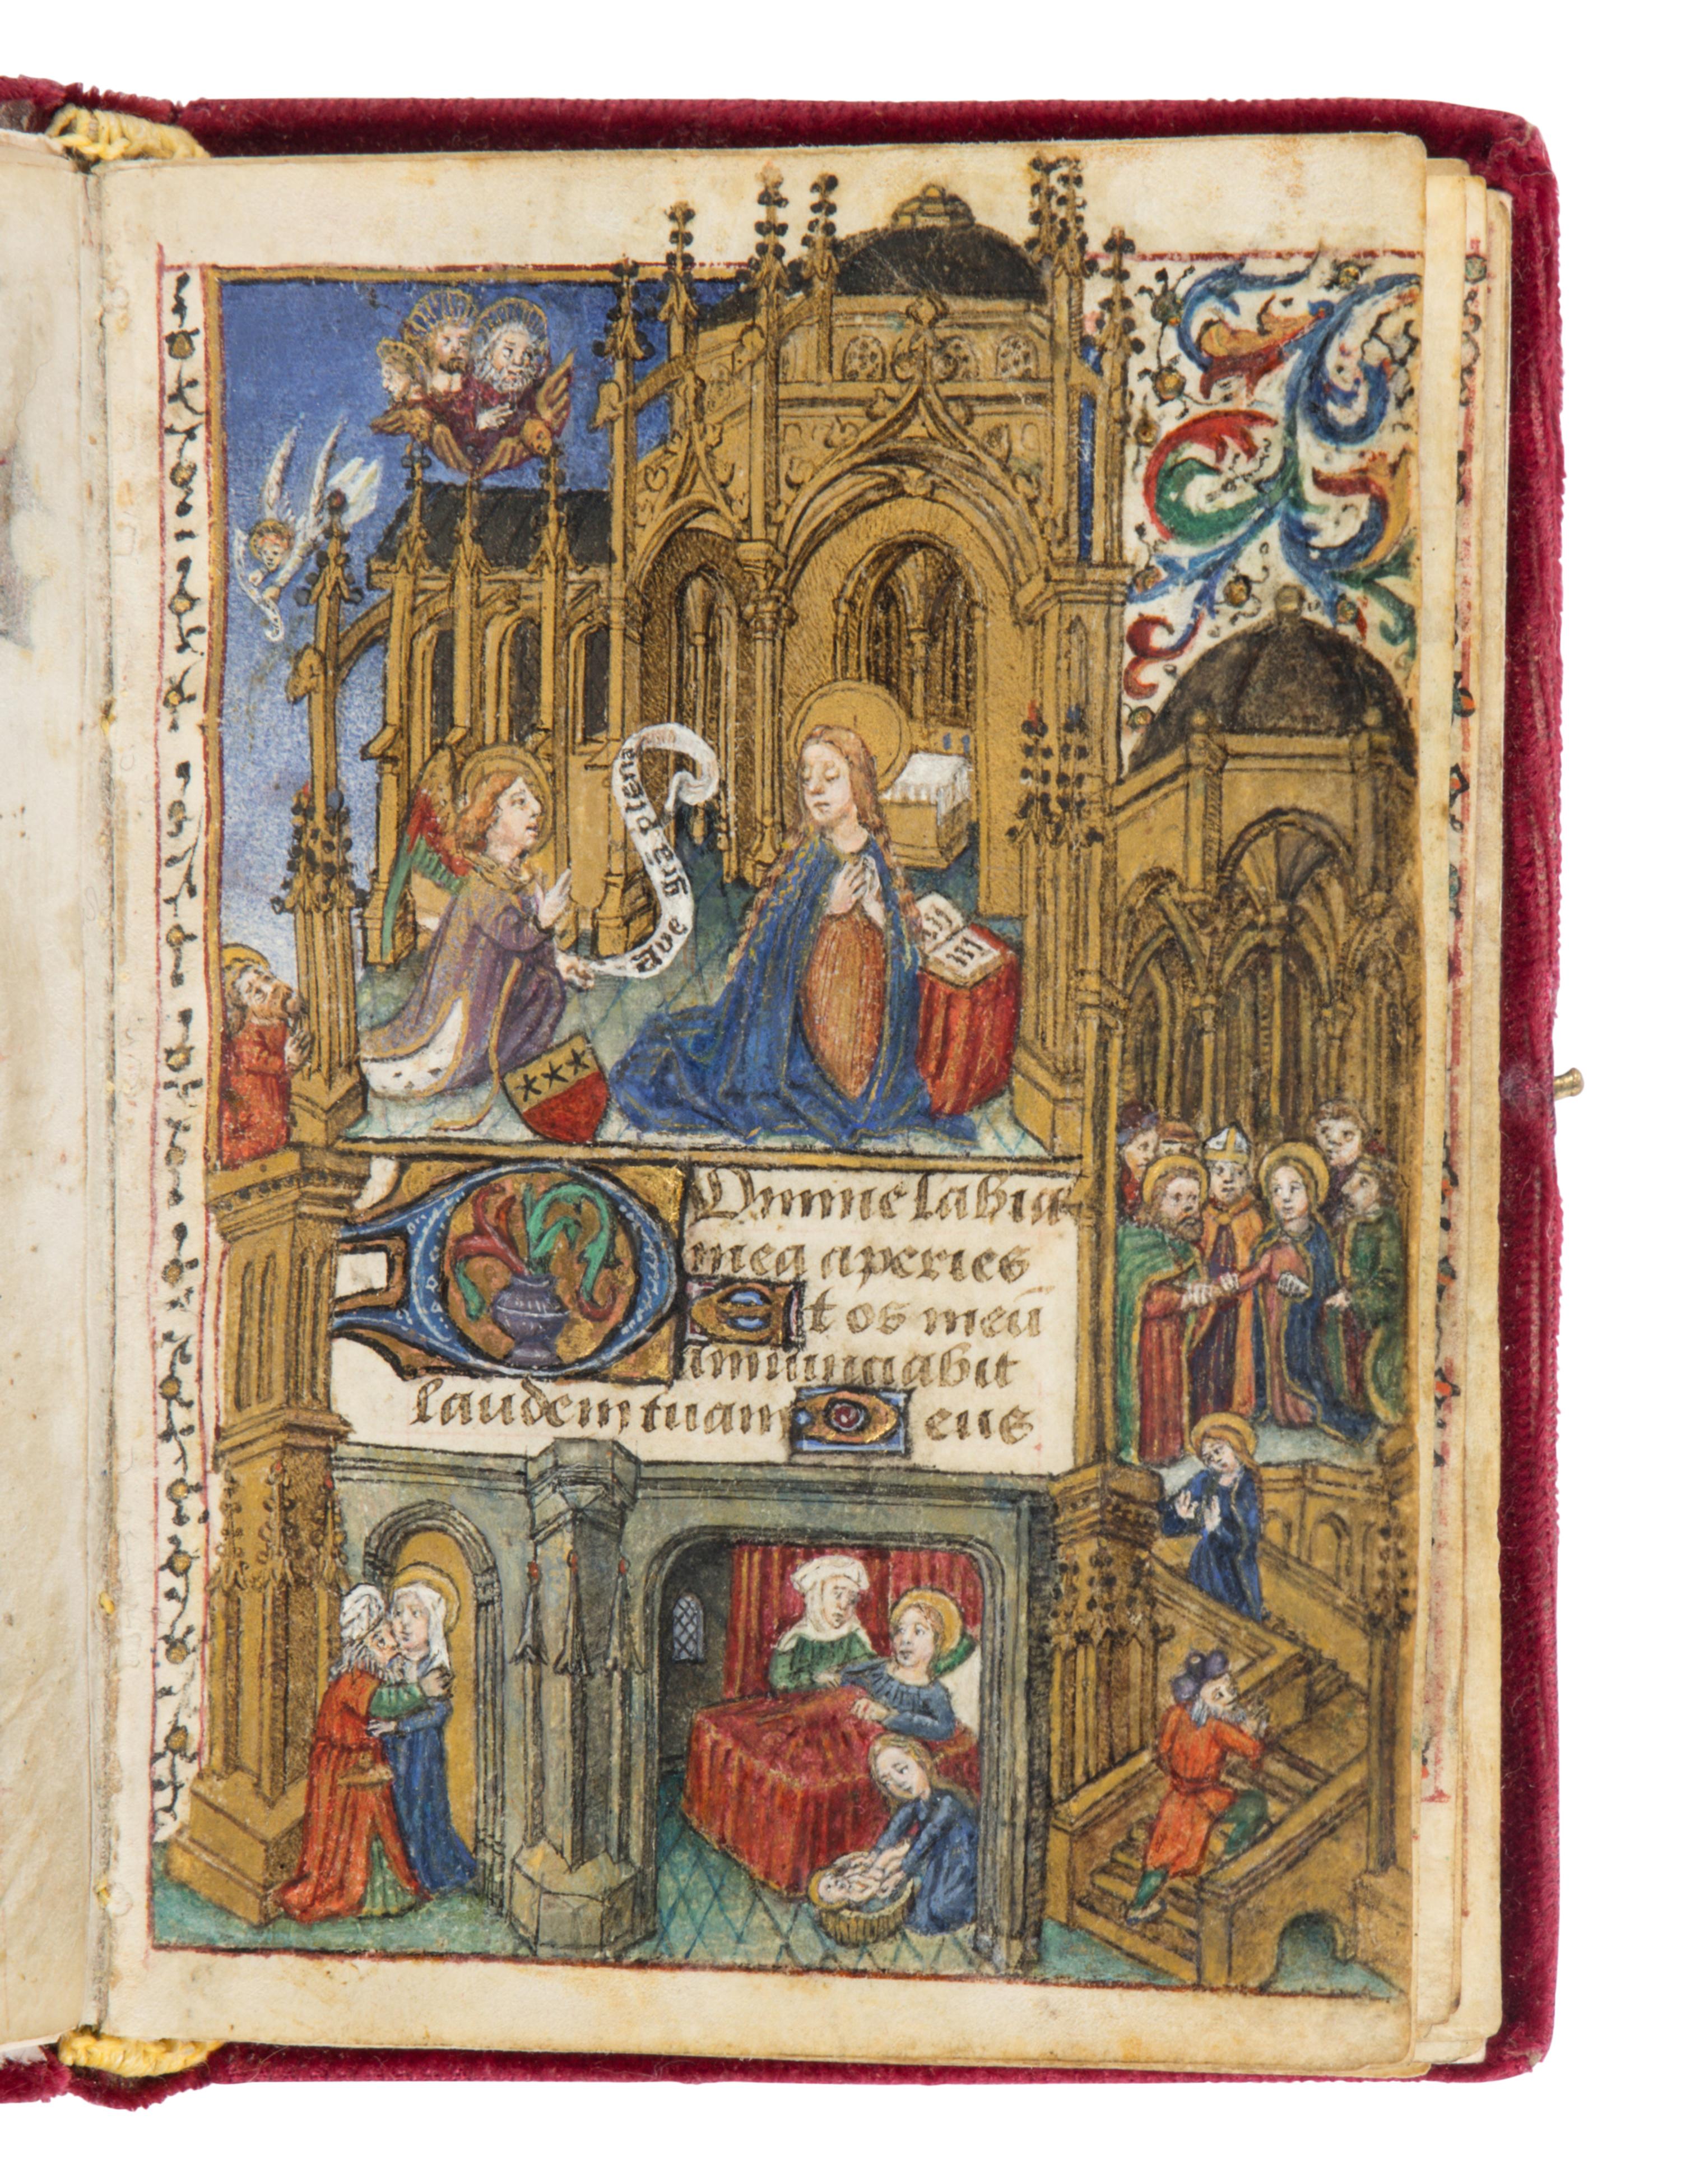 ave gr̄a plena
Domine labia
mea aperies
Et os meū
annunciabit
laudem tuam Deus